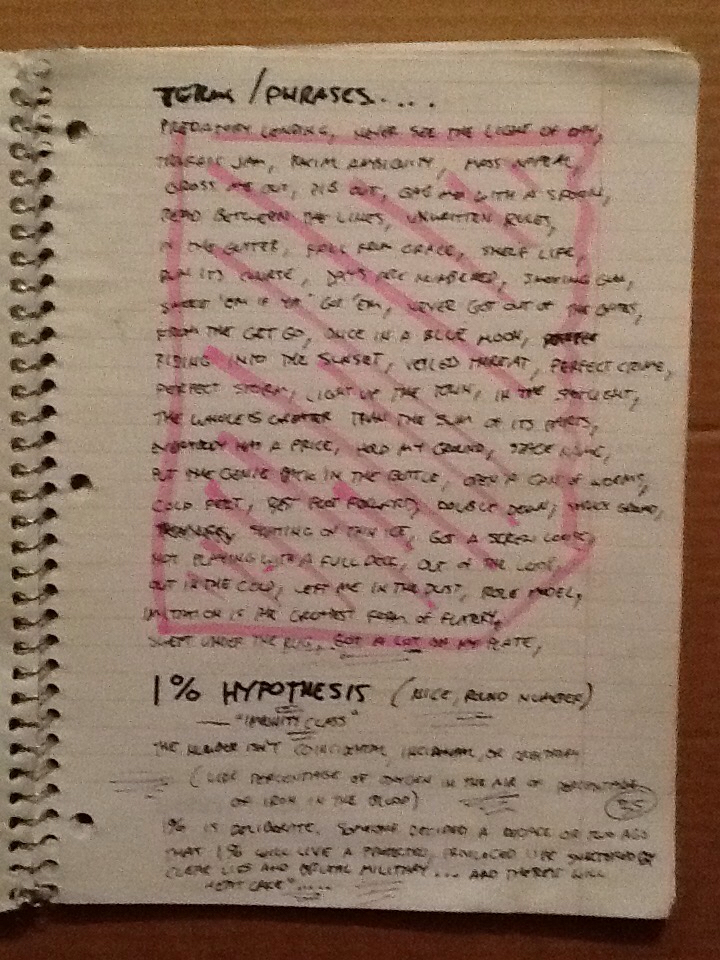 TERMS / PHRASES....
PREDATORY LENDING, NEVER SEE THE LIGHT OF DAY,
TRAFFIC JAM, RACIAL AMBIGUITY, MASS APPEAL,
GROSS ME OUT, PIG OUT, GAG ME WITH A SPOON,
READ BETWEEN THE LINES, UNWRITTEN RULES,
IN THE GUTTER, FALL FROM GRACE, SHELF LIFE,
RUN ITS COURSE, DAYS ARE NUMBERED, SMOKING GUN,
SMOKE 'EM IF YA' GOT 'EM, NEVER GET OUT OF THE GATES,
FROM THE GET GO, ONCE IN A BLUE MOON,
RIDING INTO THE SUNSET, VEILED THREAT, PERFECT CRIME,
PERFECT STORM, LIGHT UP THE TOWN, IN THE SPOTLIGHT,
THE WHOLE IS GREATER THAN THE SUM OF ITS PARTS,
EVERYBODY HAS A PRICE, HOLD MY GROUND, STAGE NAME,
PUT THE GENIE BACK IN THE BOTTLE, OPEN A CAN OF WORMS,
COLD FEET, BEST FOOT FORWARD, DOUBLE DOWN,
SKATING ON THIN ICE, GOT A SCREW LOOSE,
NOT PLAYING WITH A FULL DECK, OUT OF THE LOOP,
OUT IN THE COLD, LEFT ME IN THE DUST, ROLE MODEL,
IMITATION IS THE GREATEST FORM OF FLATTERY,
SWEPT UNDER THE RUG, GOT A LOT ON MY PLATE,
1% HYPOTHESIS (NICE, ROUND NUMBER)
— "IMMUNITY CLASS"
THE NUMBER ISN'T COINCIDENTAL, INCIDENTAL, OR ARBITRARY
(LIKE PERCENTAGE OF OXYGEN IN THE AIR OR PERCENTAGE
OF IRON IN THE BLOOD)
35
1% IS DELIBERATE. SOMEONE DECIDED A DECADE OR TWO AGO
THAT 1% WILL LIVE A PROTECTED, PRIVILEGED LIFE SHELTERED BY
CLEAR LIES AND BRUTAL MILITARY... AND THERE'S WILL